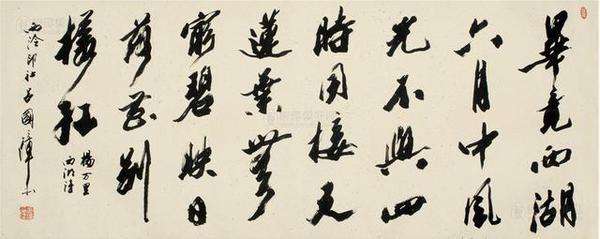 畢竟西湖
六月中風
光不與四
時同接天
蓮葉無
窮碧映日
荷花別
樣紅
楊万里
西湖詩
西泠印社 國